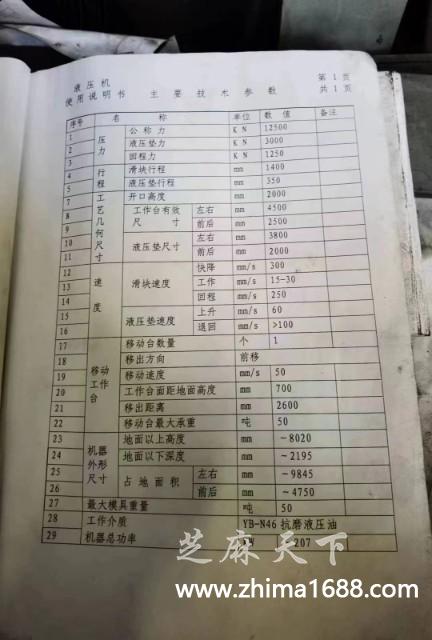 液压机
使用说明书 主要技术参数
第 1 页
共 1 页
序号 名称 单位 数值 备注
1 压力 公称力 KN 12500
2 液压垫力 KN 3000
3 回程力 KN 1250
4 行程 滑块行程 mm 1400
5 液压垫行程 mm 350
7 工艺几何尺寸 开口高度 mm 2000
8 工作台有效尺寸 左右 mm 4500
9 前后 mm 2500
10 液压垫尺寸 左右 mm 3800
11 前后 mm 2000
12 速度 滑块速度 快降 mm/s 300
13 工作 mm/s 15-30
14 回程 mm/s 250
15 液压垫速度 上升 mm/s 60
16 退回 mm/s >100
17 移动工作台 移动台数量 个 1
18 移出方向 前移
19 移动速度 mm/s 50
20 工作台面距地面高度 mm 700
21 移出距离 mm 2600
22 移动台最大承重 吨 50
23 机器外形尺寸 地面以上高度 mm ~8020
24 地面以下深度 mm ~2195
25 占地面积 左右 mm ~9845
26 前后 mm ~4750
27 最大模具重量 吨 50
28 工作介质 YB-N46 抗磨液压油
29 机器总功率 KW 207
芝麻天下
www.zhima1688.com